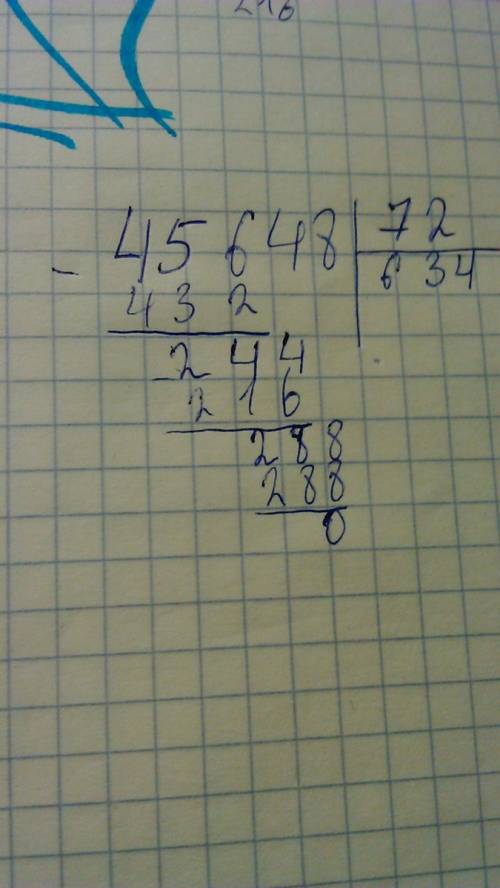 216
45648 72
- 634
432
- 244
216
288
288
0